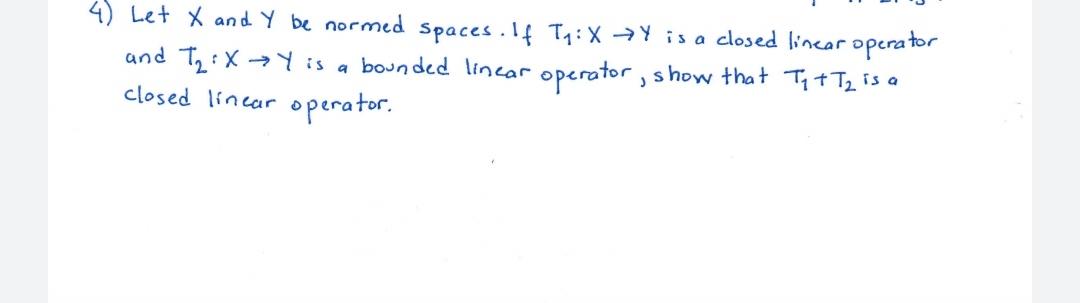 4) Let X and Y be normed spaces. If T₁: X → Y is a closed linear operator
and T₂: X → Y is a bounded linear operator, show that T₁ + T₂ is a
closed linear operator.